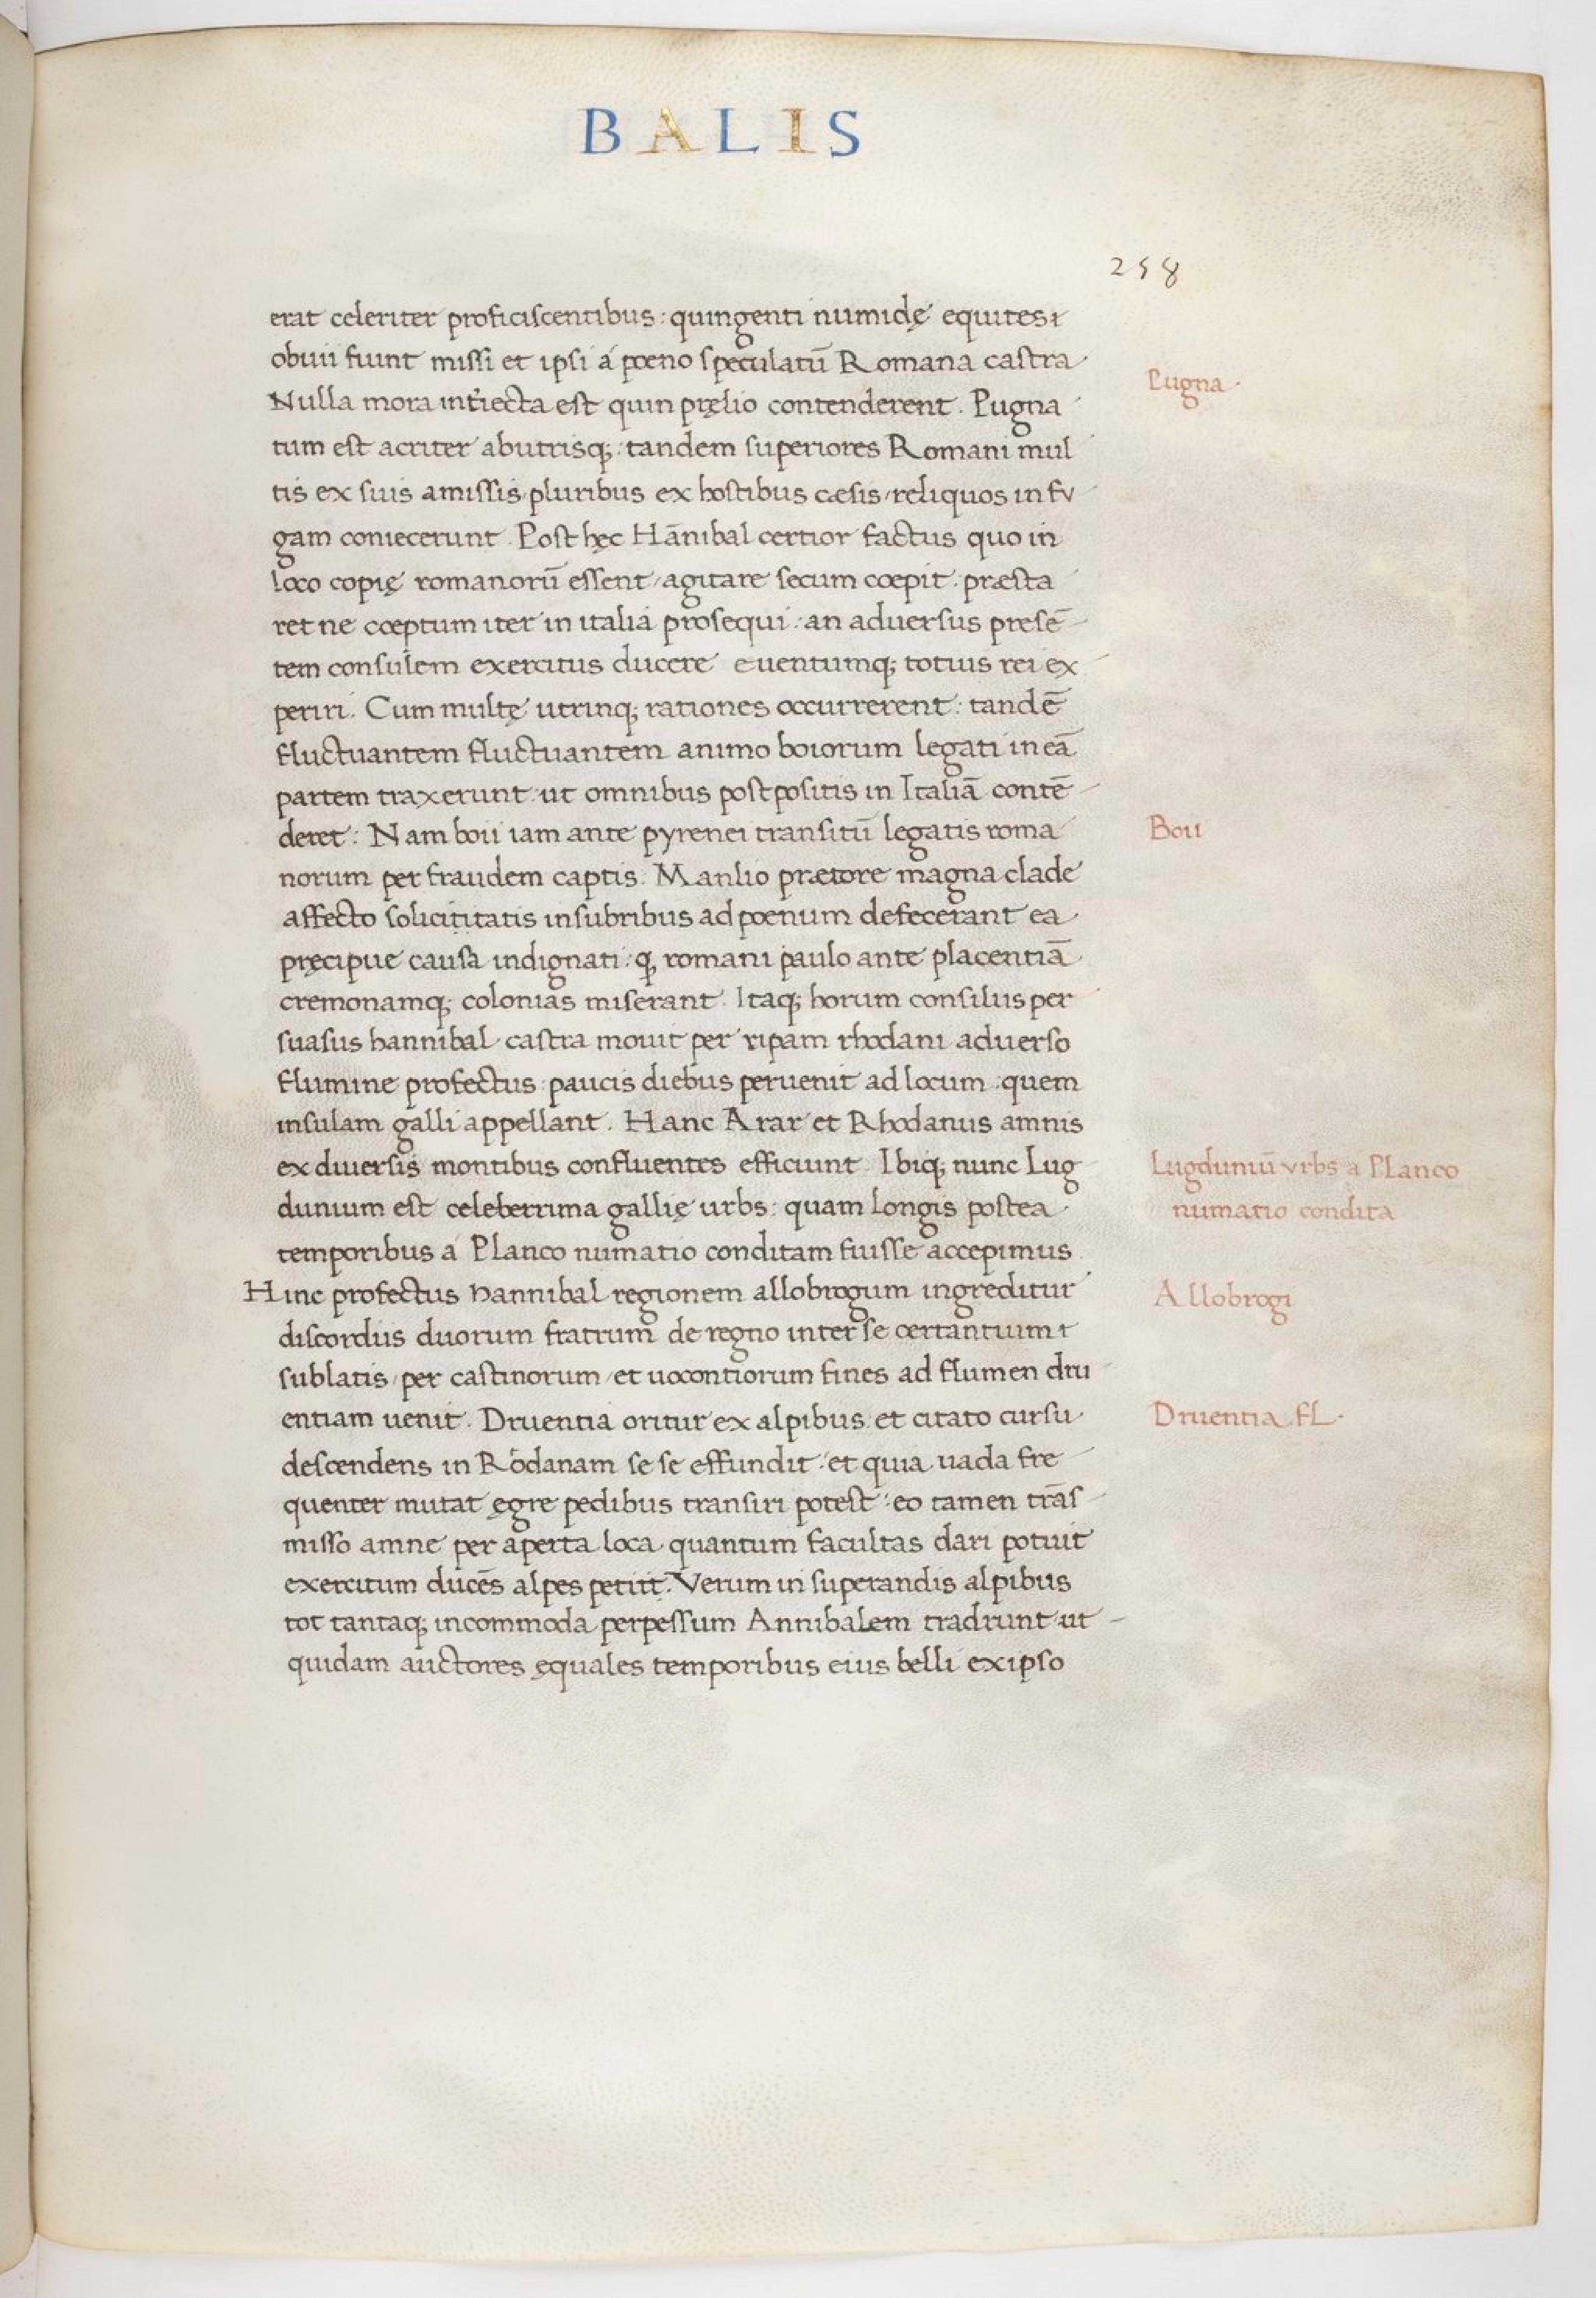 BALIS
258
erat celeriter proficiscentibus : quingenti numidę equites
obuii fiunt missi et ipsi á poeno speculatū Romana castra
Pugna
Nulla mora intˀiecta est quin pręlio contenderent. Pugna
tum est acriter abutrisq; : tandem superiores Romani mul
tis ex suis amissis pluribus ex hostibus cæsis / reliquos in fv
gam coniecerunt. Post hęc Hānibal certior factus quo in
loco copię romanorū essent / agitare secum coepit : præsta
ret ne cœptum iter in italiá prosequi : an aduersus presē
tem consulem exercitus ducere euentumq; totius rei ex
periri. Cum multę utrinq; rationes occurrerent : tandē
fluctuantem fluctuantem animo boiorum legati in eā
partem traxerunt : ut omnibus postpositis in Italiā contē
deret : Nam boii iam ante pyrenei transitū legatis roma
Boii
norum per fraudem captis. Manlio prætore magna clade
affecto solicititatis insubribus ad poenum defecerant ea
pręcipue causa indignati : q; romani paulo ante placentiā
cremonamq; colonias miserant. Itaq; horum consiliis per
suasus hannibal castra mouit per ripam rhodani aduerso
flumine profectus : paucis diebus peruenit ad locum : quem
insulam galli appellant. Hanc Arar et Rhodanus amnis
ex diuersis montibus confluentes efficiunt. Ibiq; nunc Lug
Lugduniū vrbs a Planco
numatio condita
dunium est celeberrima gallię urbs : quam longis postea
temporibus á Planco numatio conditam fuisse accepimus.
Hinc profectus hannibal regionem allobrogum ingreditur
Allobrogi
discordiis duorum fratrum de regno inter se certantium
sublatis / per castinorum / et uocontiorum fines ad flumen dru
entiam uenit. Druentia oritur ex alpibus et citato cursu
Druentia FL.
descendens in Rodanam se se effundit : et quia uada fre
quenter mutat ęgre pedibus transiri potest : eo tamen trās
misso amne per aperta loca quantum facultas dari potuit
exercitum ducēs alpes petiit. Verum in superandis alpibus
tot tantaq; incommoda perpessum Annibalem tradrunt ut
quidam auctores ęquales temporibus eius belli exipso